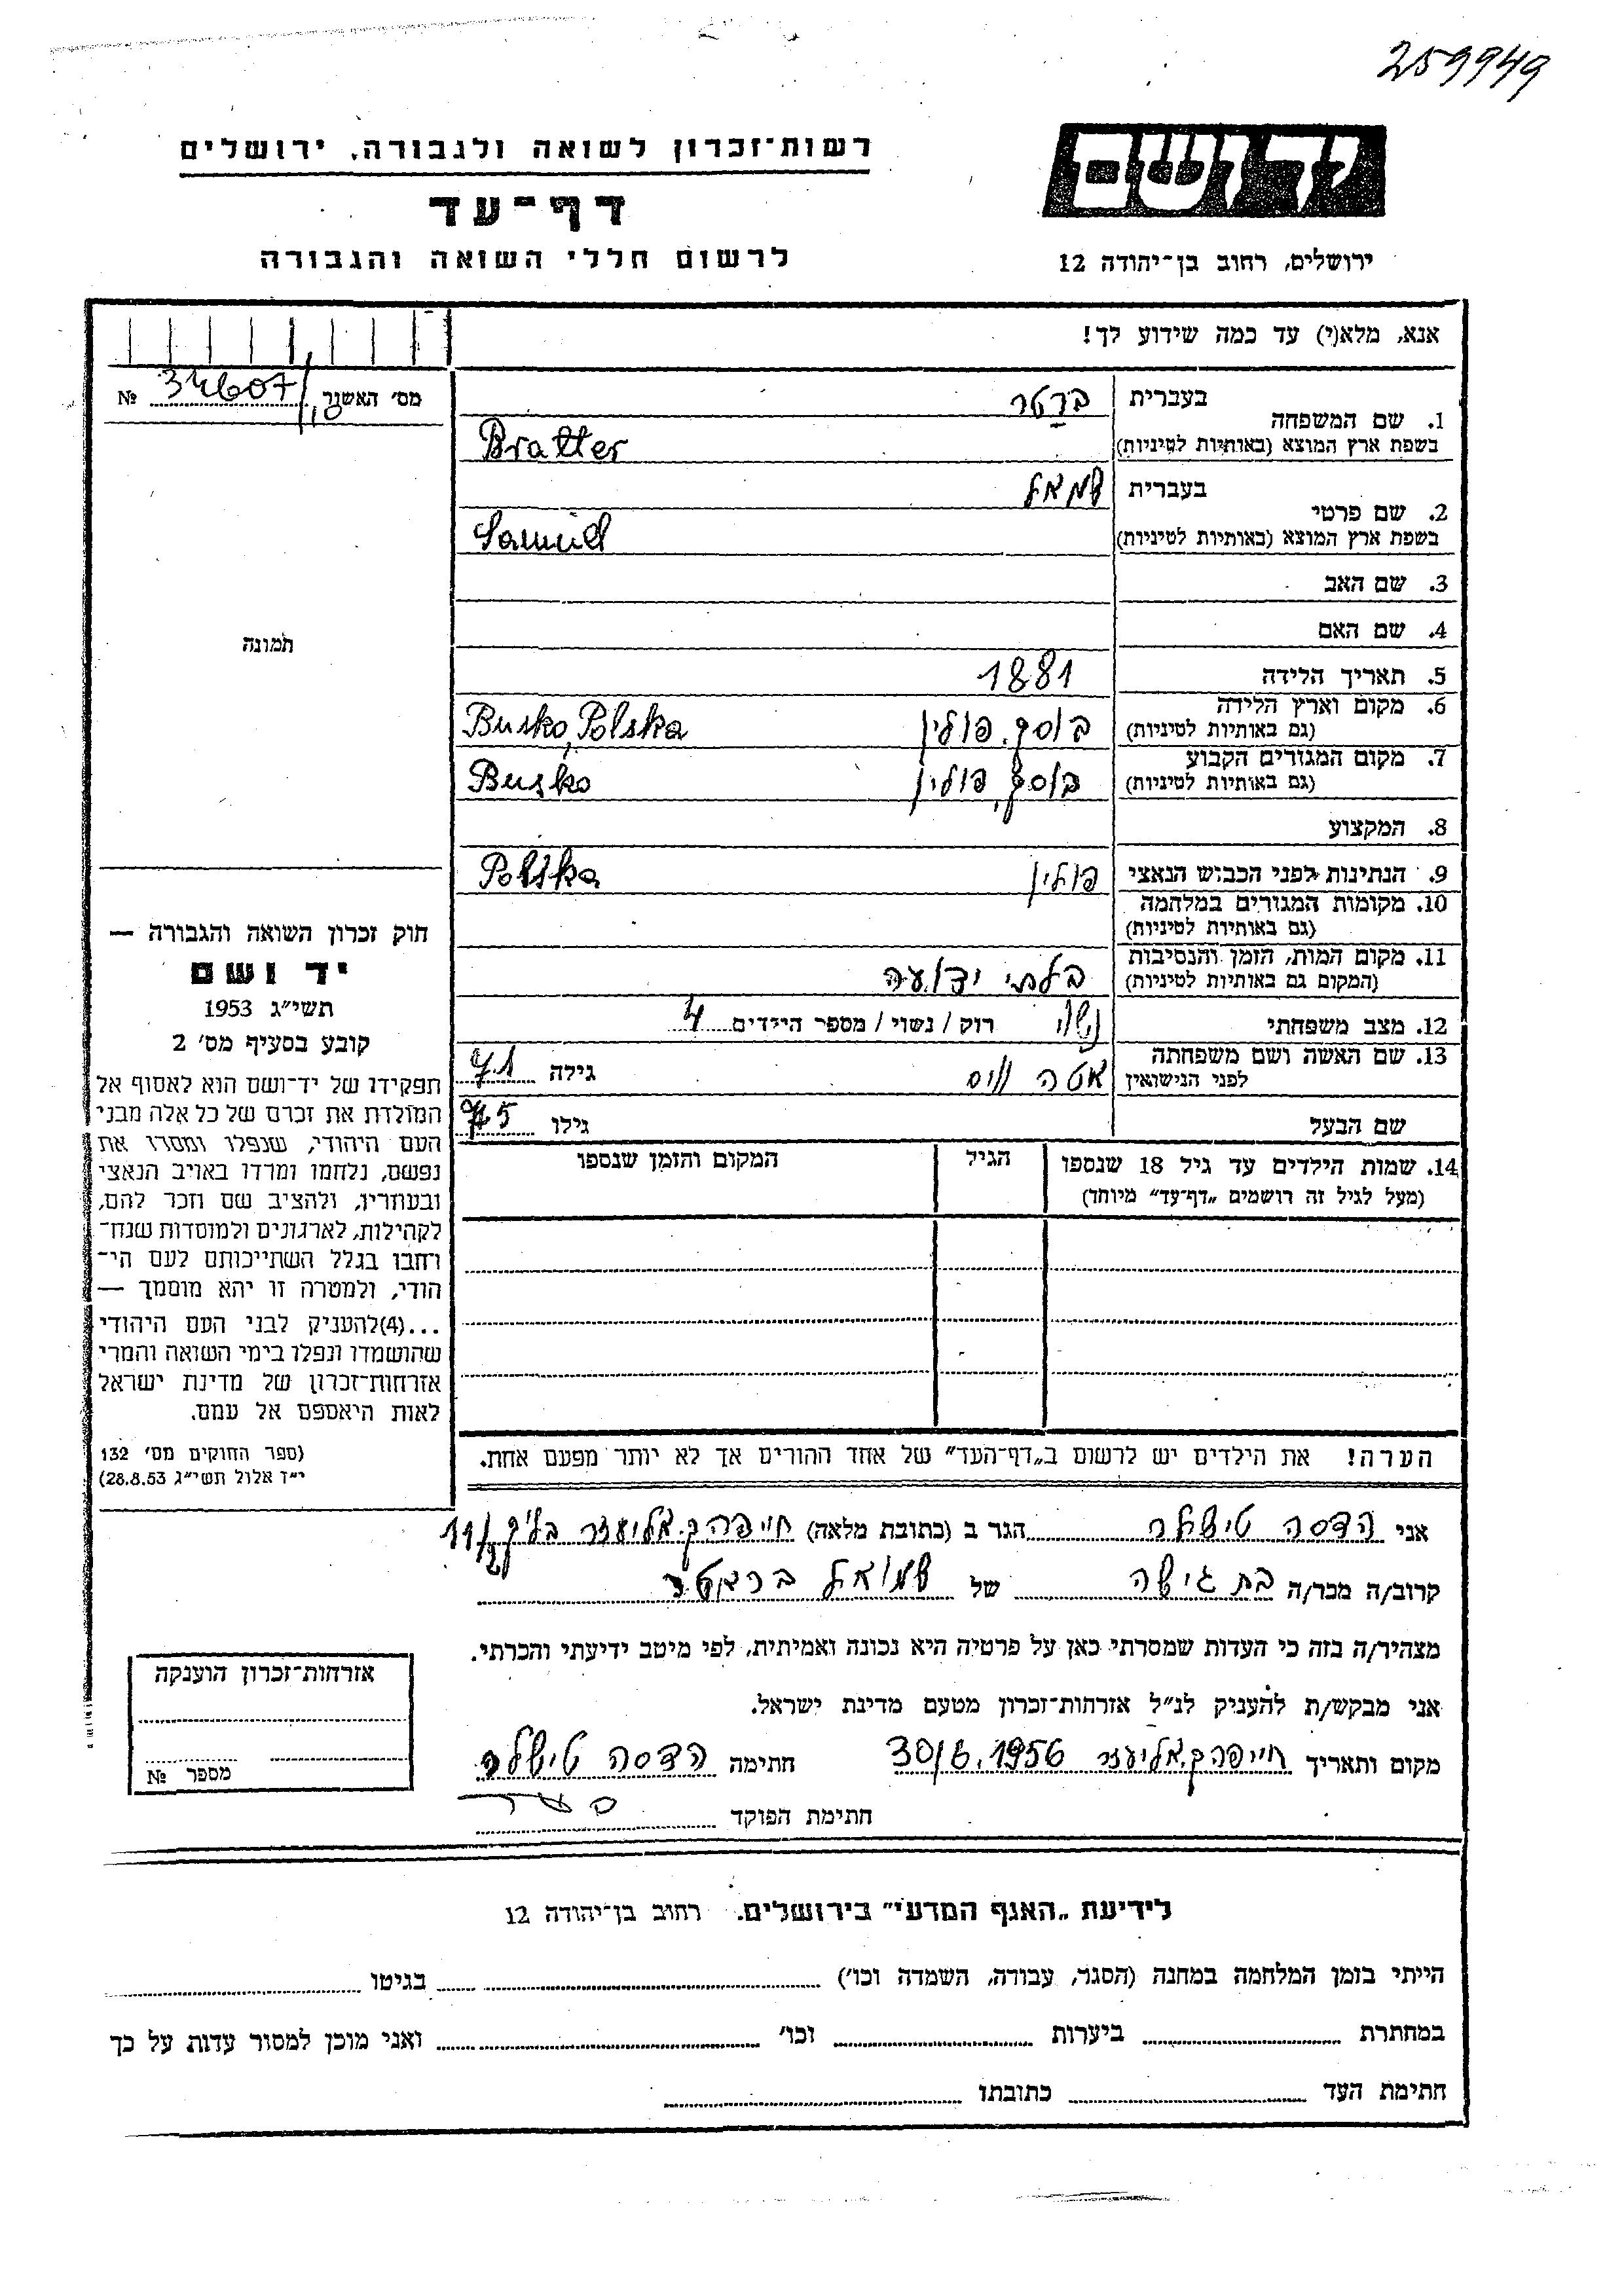 259949
ידושם
רשות־זכרון לשואה ולגבורה. ירושלים
דף־עד
לרשום חללי השואה והגבורה
ירושלים, רחוב בן־יהודה 12
אנא, מלא(י) עד כמה שידוע לך!
מס׳ האשנר № 34607/10
1. שם המשפחה בעברית ברטר
בשפת ארץ המוצא (באותיות לטיניות) Bratter
2. שם פרטי בעברית שמאל
בשפת ארץ המוצא (באותיות לטיניות) Samuel
3. שם האב
4. שם האם
תמונה
5. תאריך הלידה 1881
6. מקום וארץ הלידה (גם באותיות לטיניות) בוסק, פולין Busko, Polska
7. מקום המגורים הקבוע (גם באותיות לטיניות) בוסק, פולין Busko
8. המקצוע
9. הנתינות לפני הכבוש הנאצי פולין Polska
10. מקומות המגורים במלחמה (גם באותיות לטיניות)
11. מקום המות, הזמן והנסיבות (המקום גם באותיות לטיניות) בלתי ידועה
12. מצב משפחתי נשוי רווק / נשוי / מספר הילדים 4
13. שם האשה ושם משפחתה לפני הנישואין אטה ווייס גילה 71
שם הבעל גילו 75
14. שמות הילדים עד גיל 18 שנספו (מעל לגיל זה רושמים „דף־עד״ מיוחד) הגיל המקום והזמן שנספו
חוק זכרון השואה והגבורה —
יד ושם
תשי״ג 1953
קובע בסעיף מס׳ 2
תפקידו של יד־ושם הוא לאסוף אל
המולדת את זכרם של כל אלה מבני
העם היהודי, שנפלו ומסרו את
נפשם, נלחמו ומרדו באויב הנאצי
ובעוזריו, ולהציב שם וזכר להם,
לקהילות, לארגונים ולמוסדות שנח־
רחבו בגלל השתייכותם לעם הי־
הודי, ולמטרה זו יהא מוסמך —
...(4)להעניק לבני העם היהודי
שהושמדו ונפלו בימי השואה והמרי
אזרחות־זכרון של מדינת ישראל
לאות היאספם אל עמם.
(ספר החוקים מס׳ 132
י״ד אלול תשי״ג 28.8.53)
הערה! את הילדים יש לרשום ב„דף־העד״ של אחד ההורים אך לא יותר מפעם אחת.
אני הדסה טישלר הגר ב (כתובת מלאה) חייפה ק. אליעזר
קרוב/ה מכר/ה בת גישה של שמואל בראטר
מצהיר/ה בזה כי העדות שמסרתי כאן על פרטיה היא נכונה ואמיתית, לפי מיטב ידיעתי והכרתי.
אני מבקש/ת להעניק לנ״ל אזרחות־זכרון מטעם מדינת ישראל.
מקום ותאריך חייפה ק. אליעזר 30/6.1956 חתימה הדסה טישלר
חתימת הפוקד
אזרחות־זכרון הוענקה
מספר №
לידיעת „האגף המדעי״ בירושלים. רחוב בן־יהודה 12
הייתי בזמן המלחמה במחנה (הסגר, עבודה, השמדה וכו׳) בגיטו
במחתרת ביערות וכו׳ ואני מוכן למסור עדות על כך
חתימת העד כתובתו